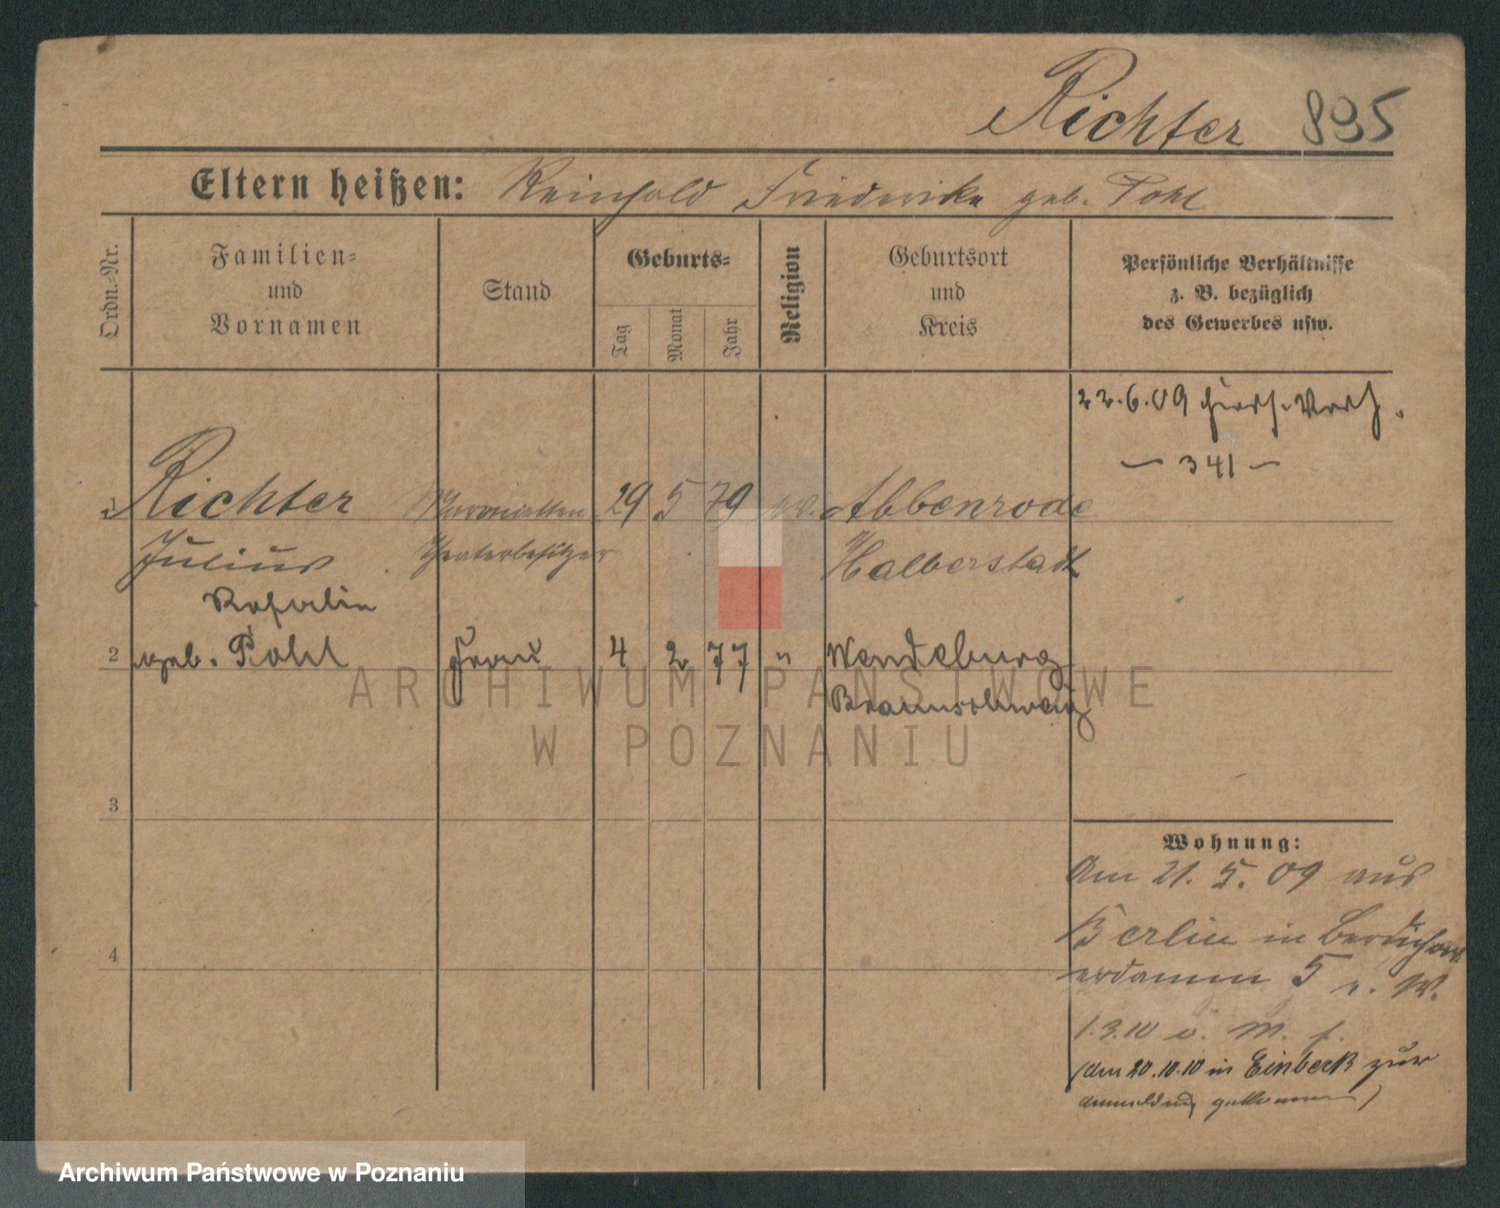 Richter 895
Eltern heißen: Reinhold Friederike geb. Pohl
Ordn.-Nr.
Familien-
und
Vornamen
Stand
Geburts-
Tag
Monat
Jahr
Religion
Geburtsort
und
Kreis
Persönliche Verhältnisse
z. B. bezüglich
des Gewerbes usw.
22.6.09
— 341 —
1 Richter Marionetten 29 5 79 Abbenrode
Julius theaterbesitzer Halberstadt
Rosalie
2 geb. Pohl Frau 4 2 77 " Wendeburg
Braunschweig
3
4
Wohnung:
Am 21. 5. 09 aus
Berlin in
erdamm 5 n. W.
1.3.10 v. M.
(am 20.10.10 in Einbeck zur
Anmeldung gekommen)
ARCHIWUM PAŃSTWOWE
W POZNANIU
Archiwum Państwowe w Poznaniu